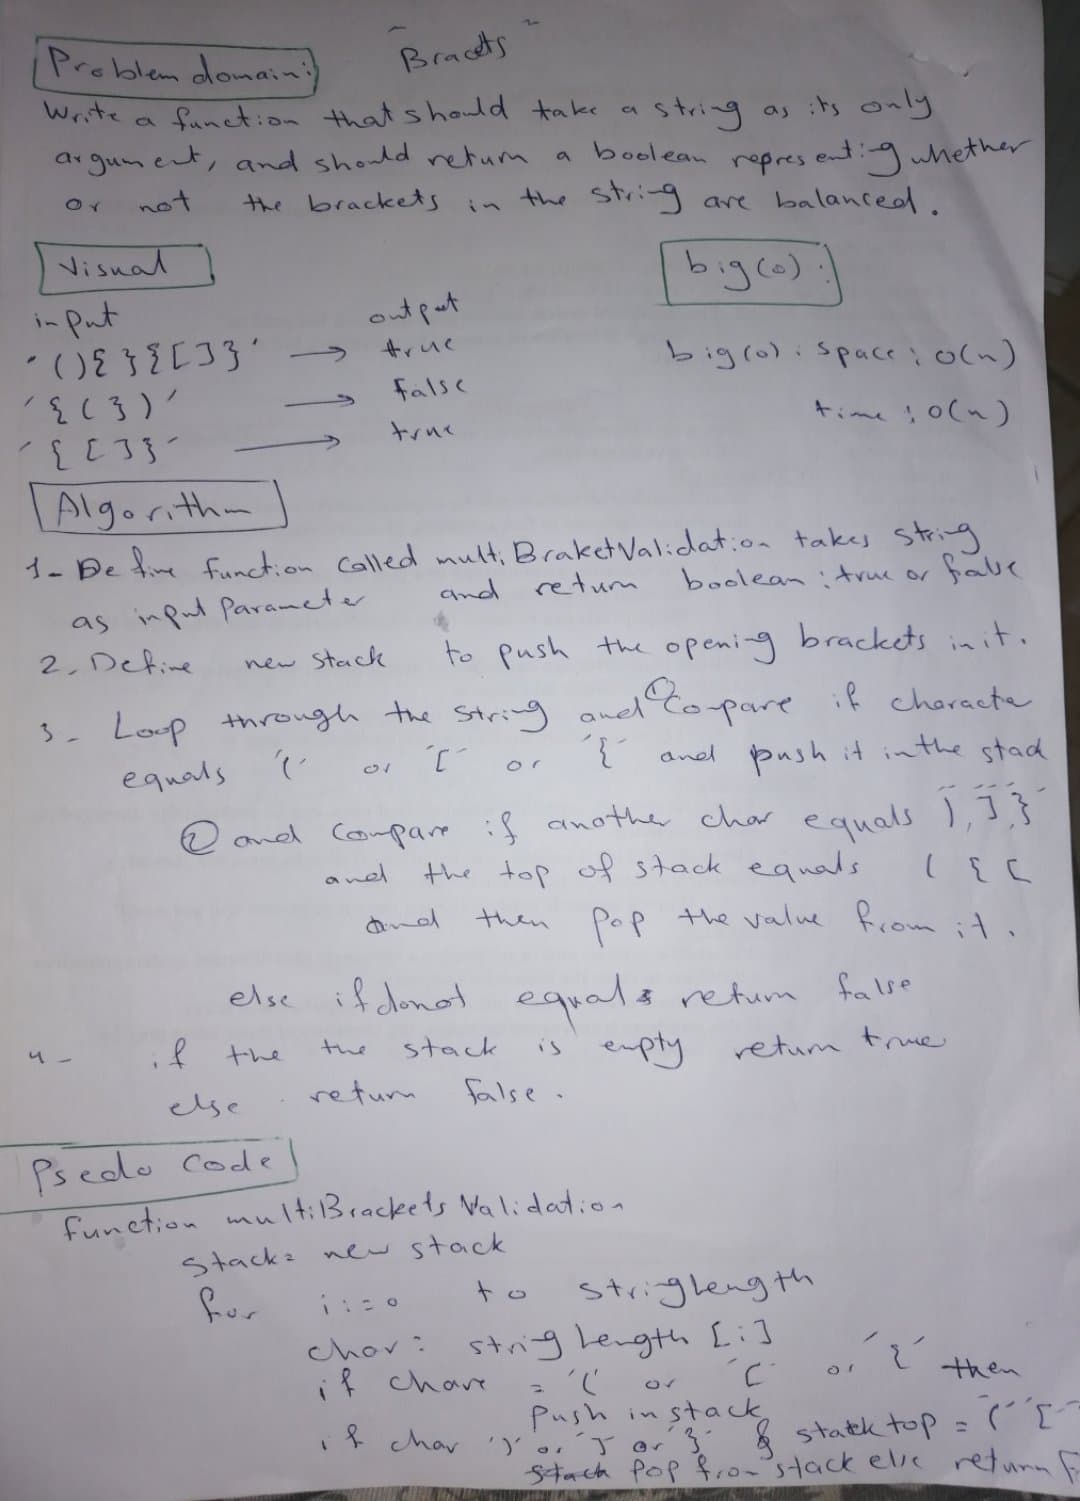 Problem domain:
"Bracets"
Write a function that should take a string as its only
argument, and should return a boolean representing whether
or not the brackets in the string are balanced.
Visual
big(o):
input output
'(){}{[]}' → true
'{(})' → false
'{[]}' → true
big(o): space: O(n)
time: O(n)
Algorithm
1- Define function called multiBraketValidation takes string
as input Parameter and return boolean: true or false
2. Define new stack to push the opening brackets in it.
3- Loop through the string and ① Compare if character
equals '(' or '[' or '{' and push it in the stack
② and Compare if another char equals ')', ']', '}'
and the top of stack equals ( { [
and then pop the value from it.
else if donot equals return false
4- if the the stack is empty return true
else return false.
Psedo code
function multiBrackets Validation
stack= new stack
for i:=0 to stringLength
char: string Length [i]
if chare = '(' or '[' or '{' then
Push in stack
if char ')' or ']' or '}' & stack top = '(' '['
pop from stack else return